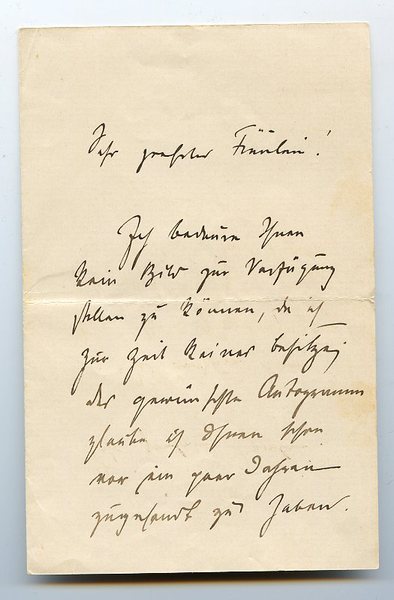 Sehr geehrtes Fräulein!
Ich bedaure Ihnen
kein Bild zur Verfügung
stellen zu können, da ich
zur Zeit keines besitze;
das gewünschte Autogramm
glaube ich Ihnen schon
vor ein paar Jahren
zugesandt zu haben.